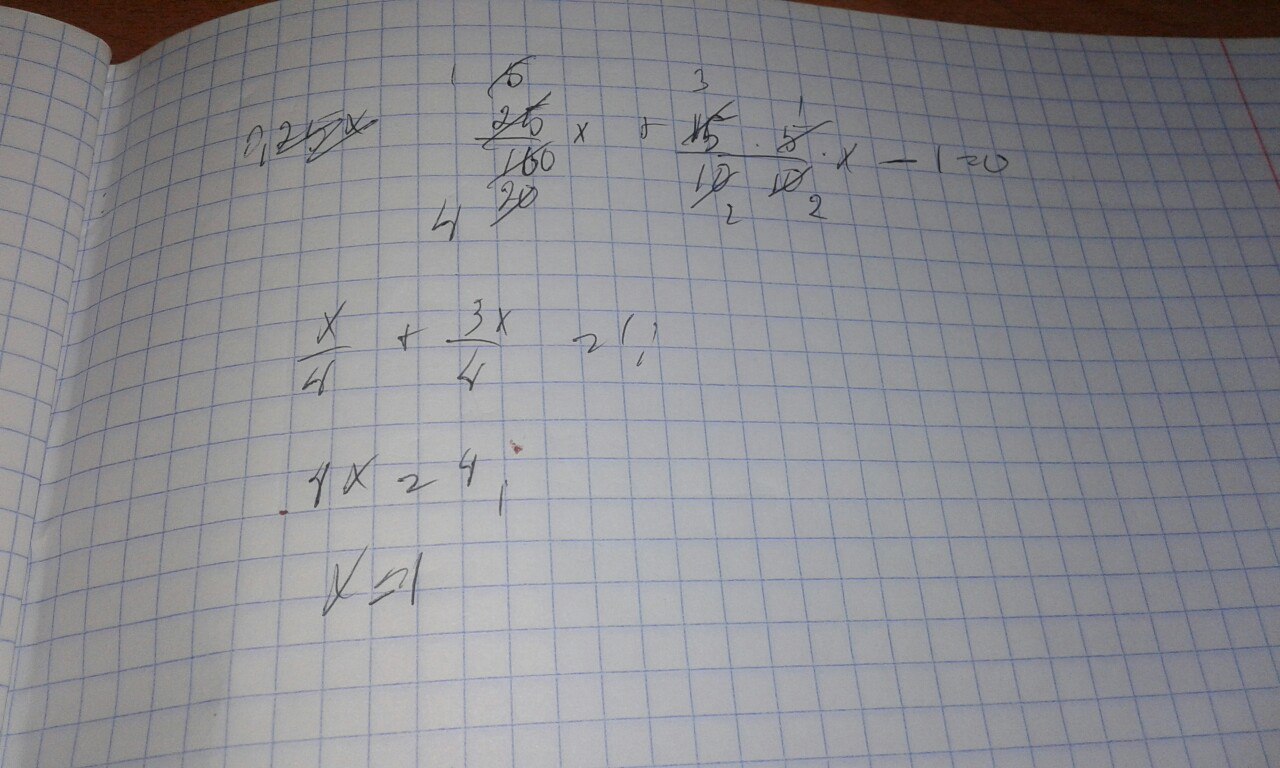 0,25x 25/100 x + 15/10 · 5/10 · x - 1 = 0
x/4 + 3x/4 = 1;
4x = 4;
x = 1